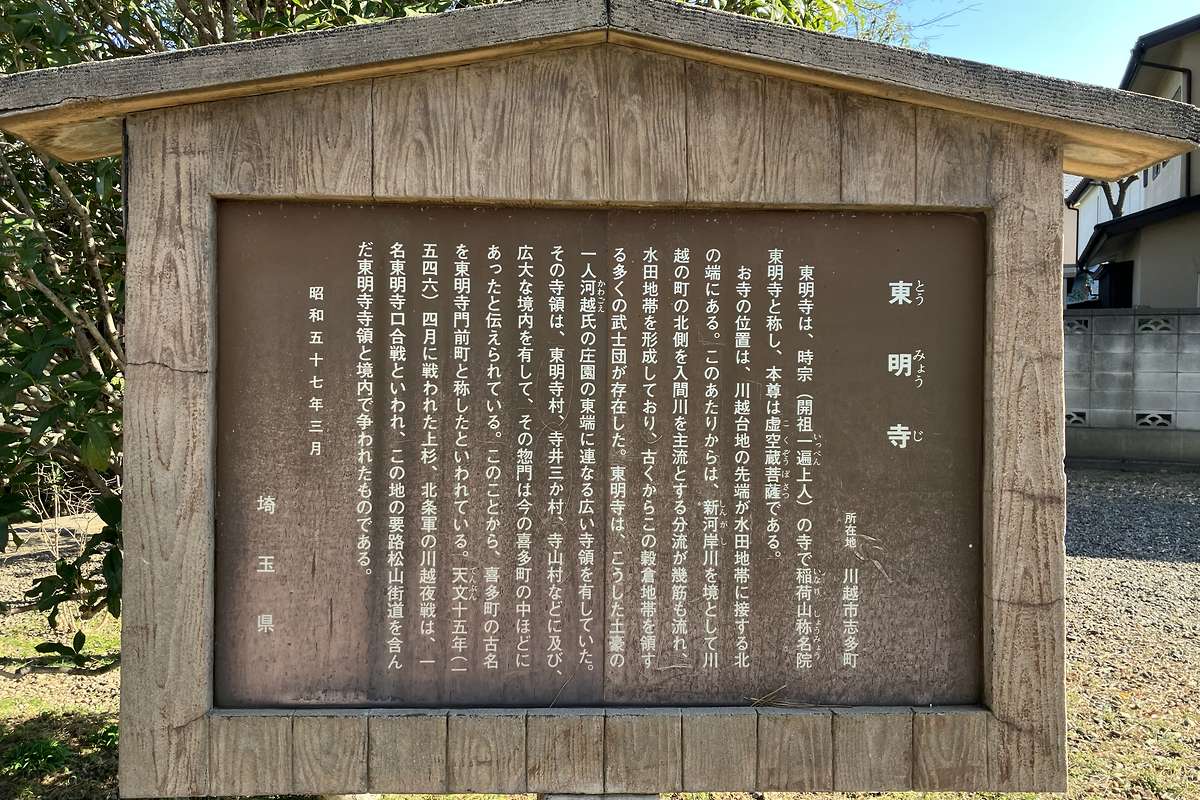 東明寺
とうみょうじ
所在地 川越市志多町
東明寺は、時宗(開祖一遍上人)の寺で稲荷山称名院
いっぺん いなり しょうみょう
東明寺と称し、本尊は虚空蔵菩薩である。
こくぞうぼさつ
お寺の位置は、川越台地の先端が水田地帯に接する北
の端にある。このあたりからは、新河岸川を境として川
しんがし
越の町の北側を入間川を主流とする分流が幾筋も流れ、
水田地帯を形成しており、古くからこの穀倉地帯を領す
る多くの武士団が存在した。東明寺は、こうした土豪の
一人河越氏の庄園の東端に連なる広い寺領を有していた。
かわごえ
その寺領は、東明寺村、寺井三か村、寺山村などに及び、
広大な境内を有して、その惣門は今の喜多町の中ほどに
あったと伝えられている。このことから、喜多町の古名
を東明寺門前町と称したといわれている。天文十五年(一
てんぶん
五四六)四月に戦われた上杉、北条軍の川越夜戦は、一
名東明寺口合戦といわれ、この地の要路松山街道を含ん
だ東明寺寺領と境内で争われたものである。
昭和五十七年三月
埼玉県